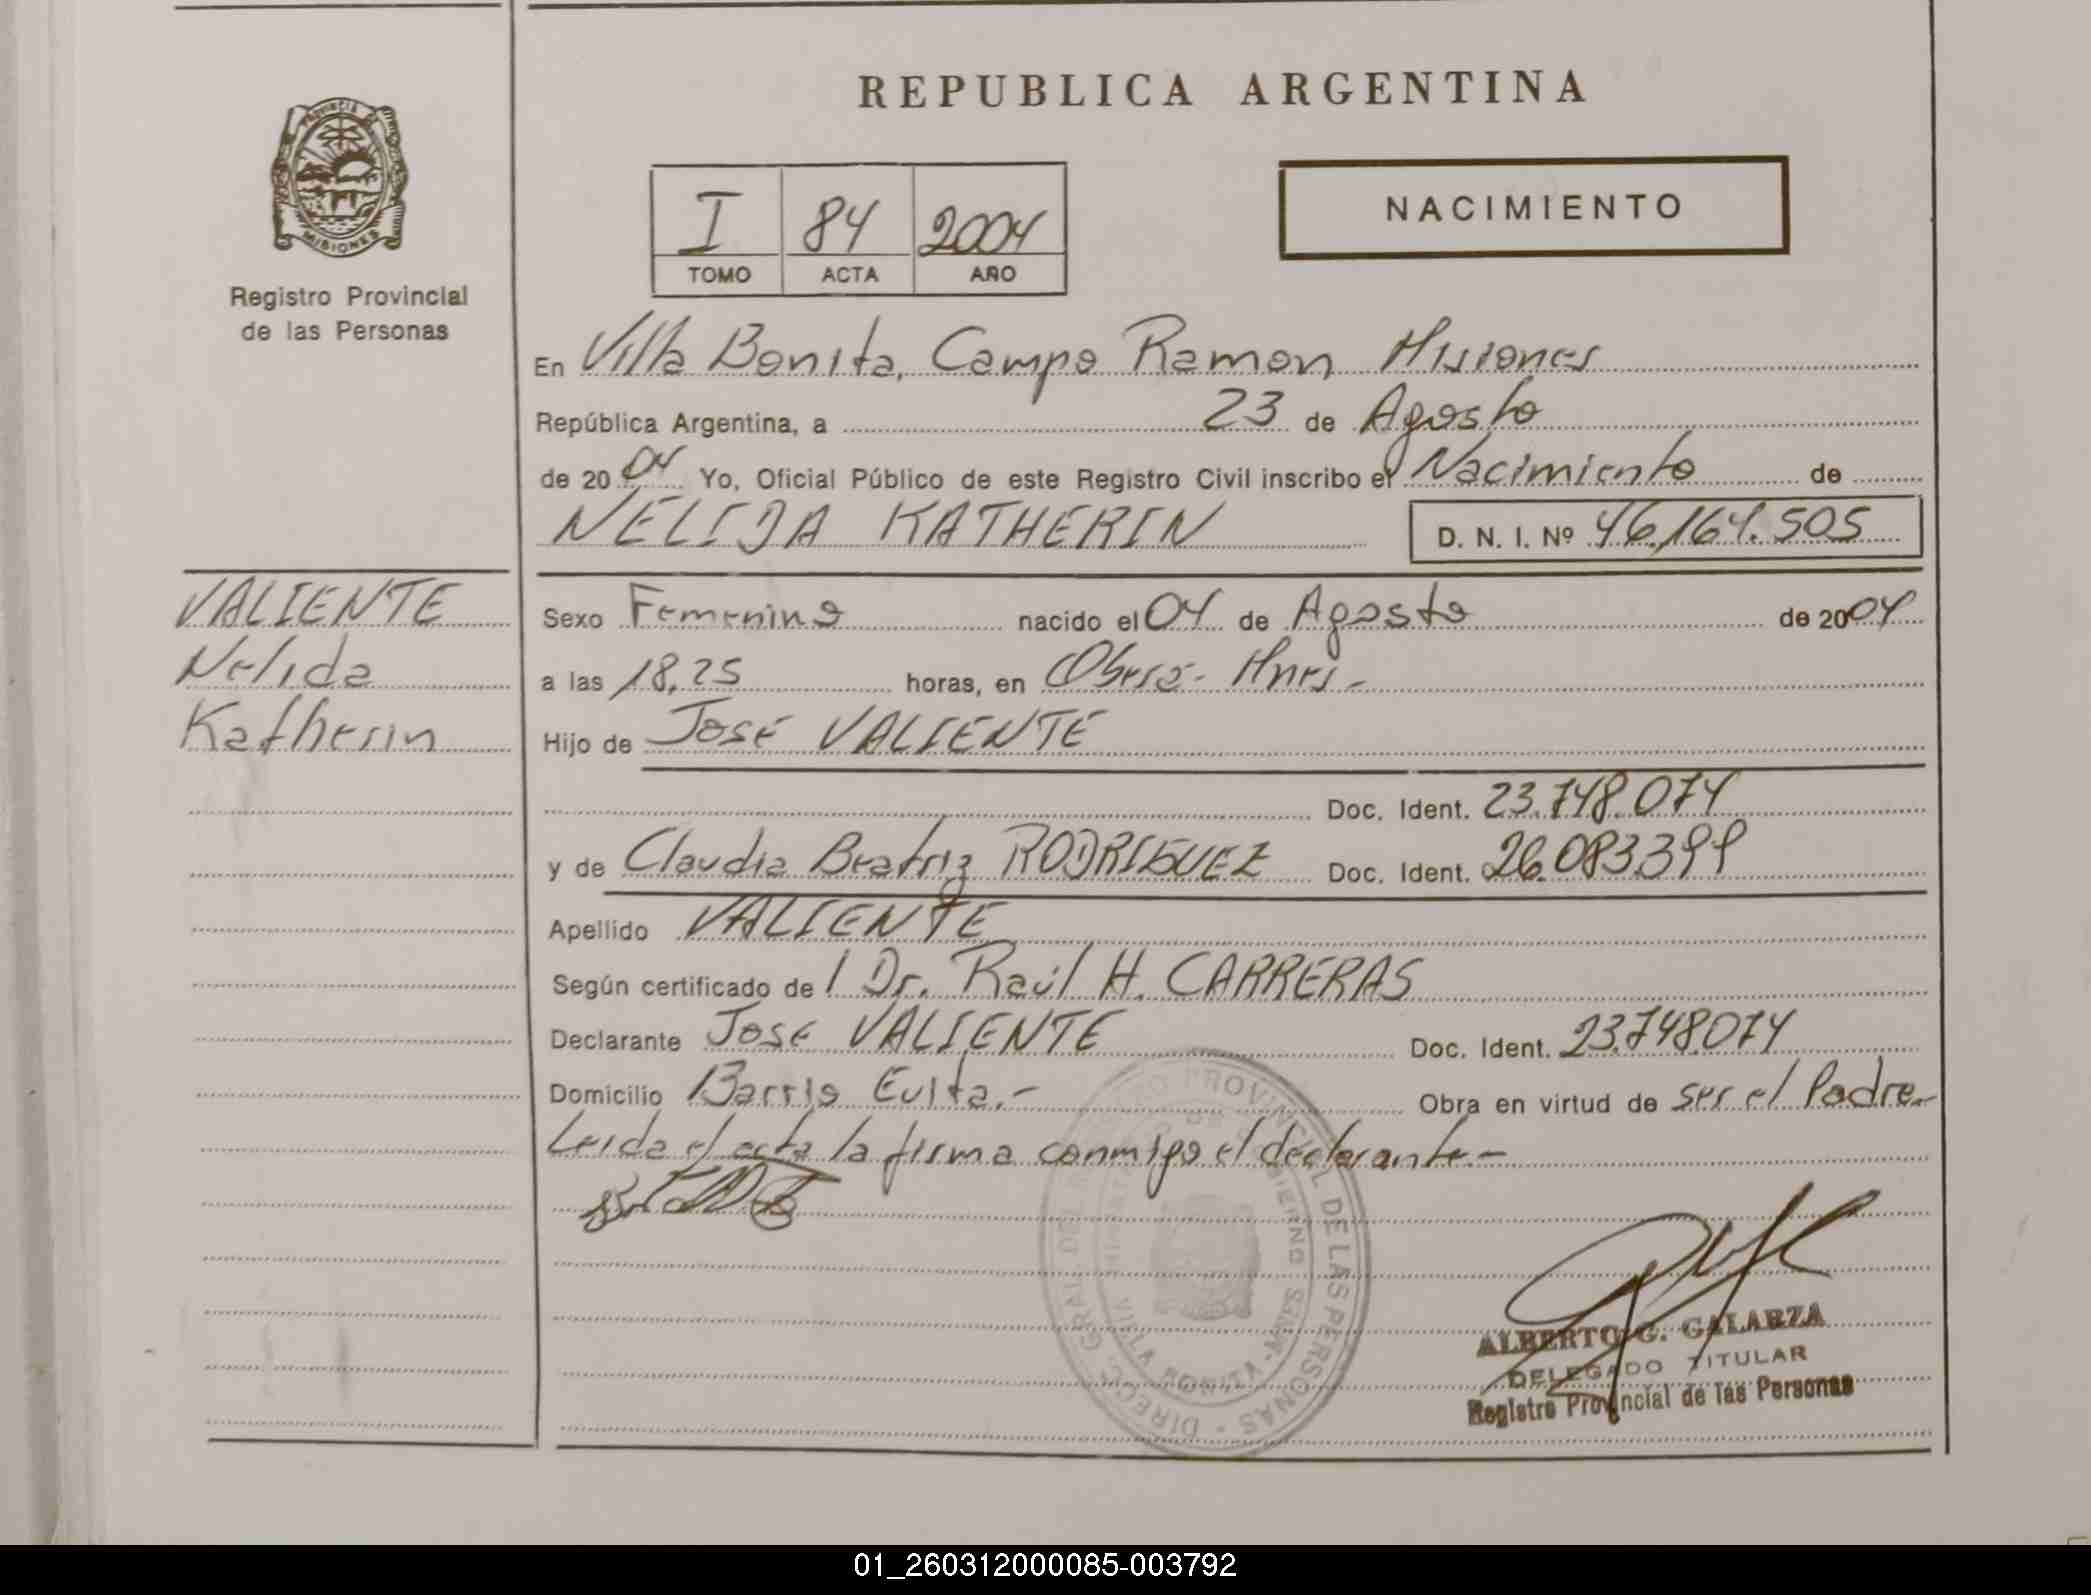 REPUBLICA ARGENTINA
PROVINCIA DE
MISIONES
Registro Provincial
de las Personas
I 84 2004
TOMO ACTA AÑO
NACIMIENTO
En Villa Bonita, Campo Ramon Misiones
República Argentina, a 23 de Agosto
de 2004 Yo, Oficial Público de este Registro Civil inscribo el Nacimiento de
NELIDA KATHERIN D. N. I. Nº 46.164.505
VALIENTE
Nelida
Katherin
Sexo Femenino nacido el 04 de Agosto de 2004
a las 18,25 horas, en Oberá - Mnes.-
Hijo de José VALIENTE
Doc. Ident. 23.748.074
y de Claudia Beatriz RODRIGUEZ Doc. Ident. 26.083.399
Apellido VALIENTE
Según certificado de l Dr. Raúl H. CARRERAS
Declarante José VALIENTE Doc. Ident. 23.748.074
Domicilio Barrio Evita.- Obra en virtud de ser el Padre.-
Leida el acta la firma conmigo el declarante.-
DIRECC. GRAL DEL REGISTRO PROVINCIAL DE LAS PERSONAS
VILLA BONITA - MNES.
ALBERTO G. GALARZA
DELEGADO TITULAR
Registro Provincial de las Personas
01_260312000085-003792